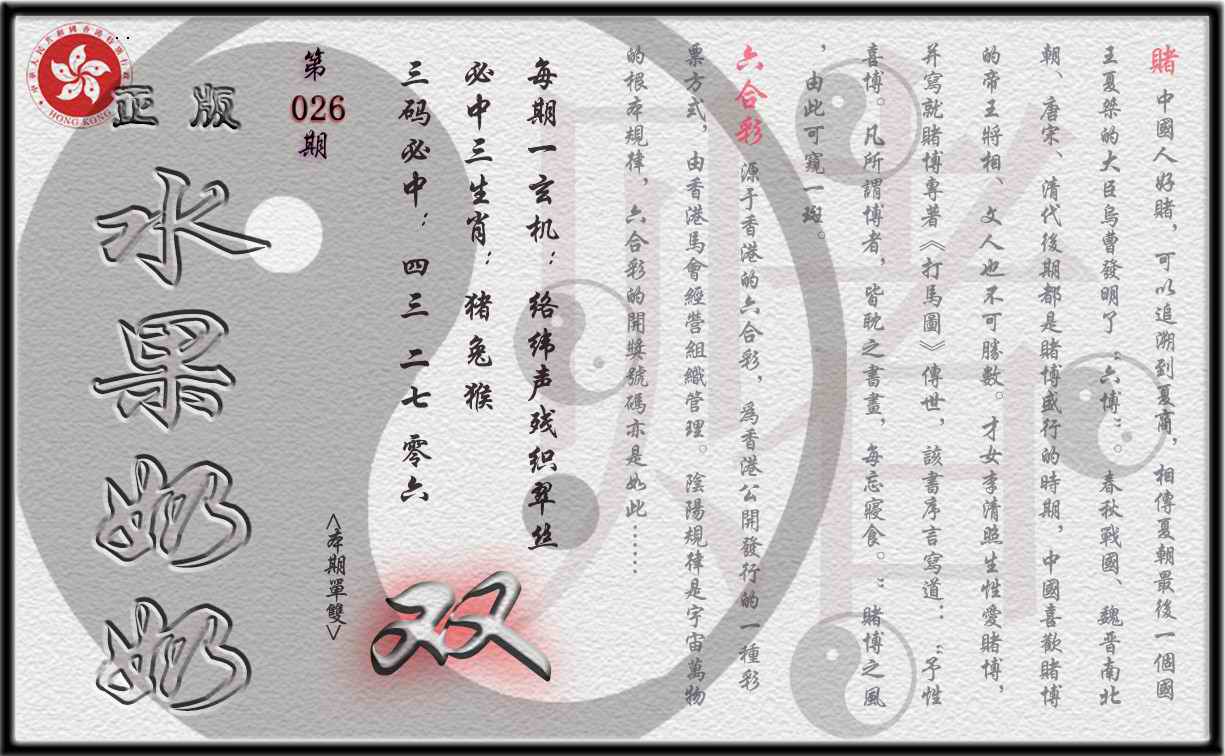 賭 中國人好賭，可以追溯到夏商，相傳夏朝最後一個國
王夏桀的大臣烏曹發明了“六博”。春秋戰國、魏晋南北
朝、唐宋、清代後期都是賭博盛行的時期，中國喜歡賭博
的帝王將相、文人也不可勝數。才女李清照生性愛賭博，
并寫就賭博專著《打馬圖》傳世，該書序言寫道：“予性
喜博。凡所謂博者，皆耽之書畫，每忘寢食。”賭博之風
，由此可窺一斑。
六合彩 源于香港的六合彩，爲香港公開發行的一種彩
票方式，由香港馬會經營組織管理。陰陽規律是宇宙萬物
的根本規律，六合彩的開獎號碼亦是如此……
每期一玄机：络纬声残织翠丝
必中三生肖：猪兔猴
三码必中：四三 二七 零六
<本期單雙>
双
第
026
期
正版
水果奶奶
HONG KONG